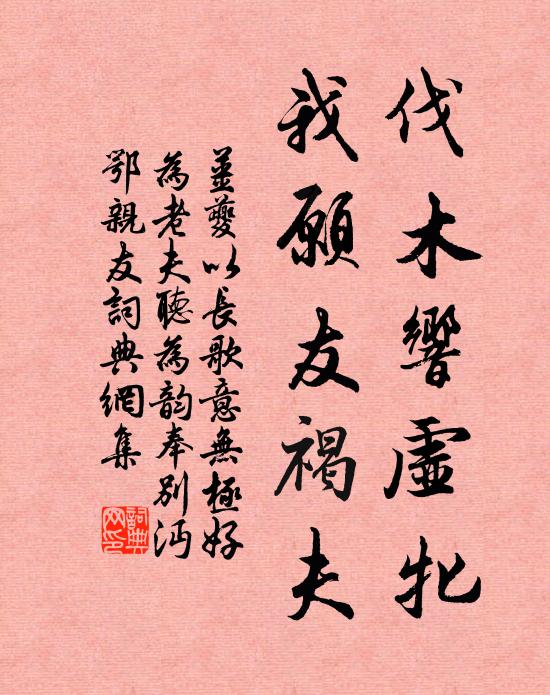 伐木響虛牝
我願友褐夫
姜夔以長歌意無極好
為老夫聽為韵奉別沔
鄂親友詞典網集
詞典
网印